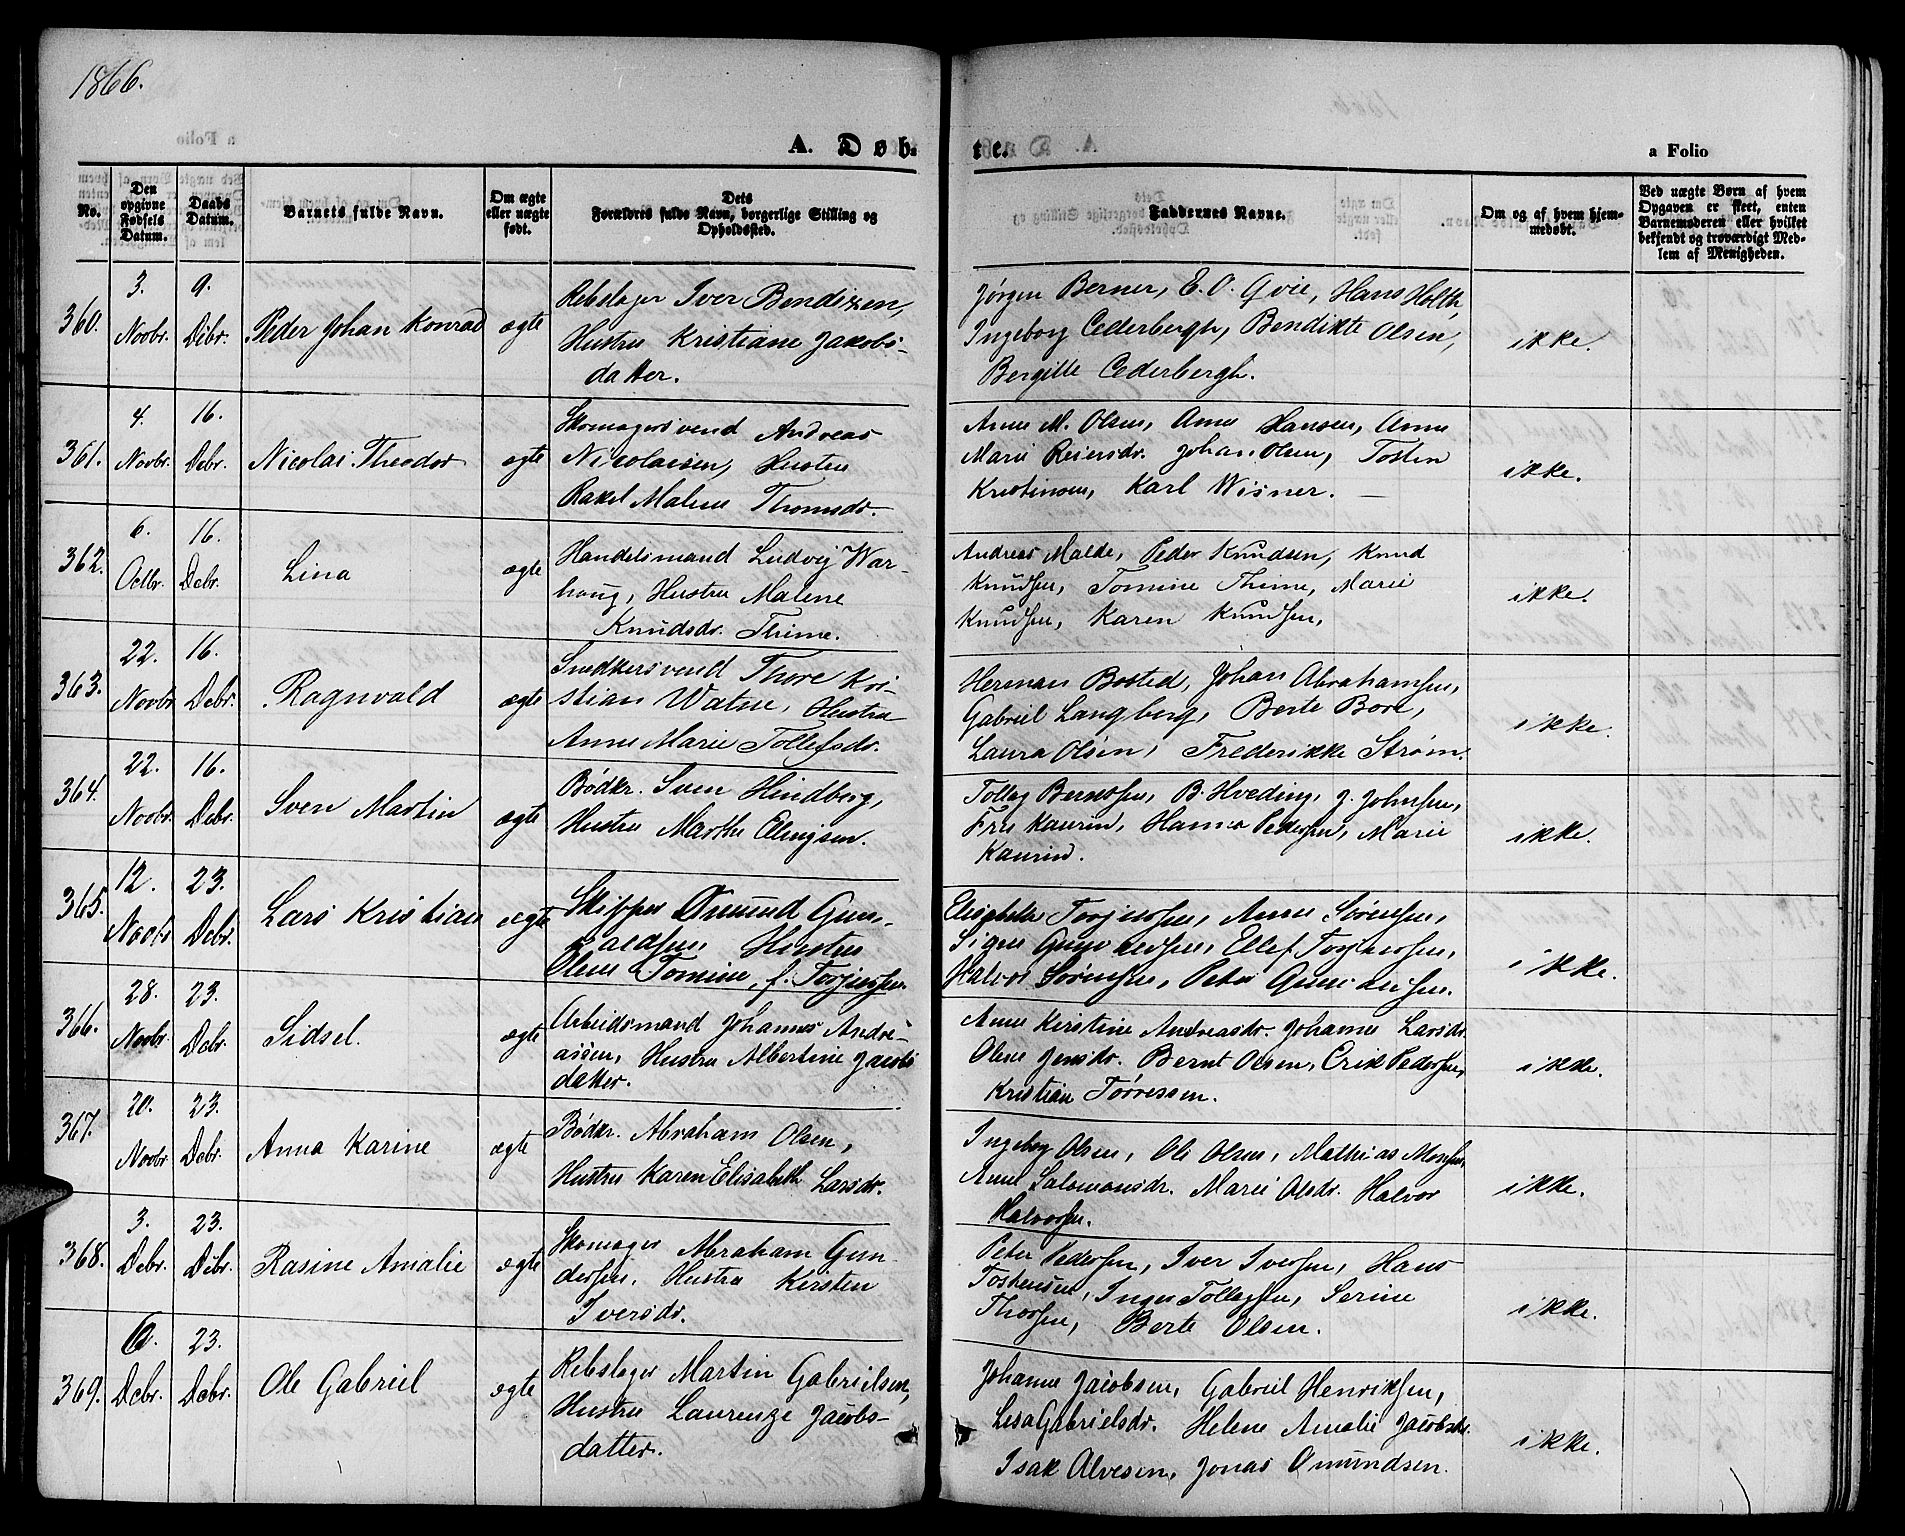 1866.
A. Døb-
te.
a Folio
No.
Den opgivne Fødsels Datum.
Daabs Datum.
Barnets fulde Navn.
Om ægte eller uægte født.
Dets Forældres fulde Navn, borgerlige Stilling og Opholdssted.
Faddernes Navne.
Om og af hvem hjemmedøbt.
Ved uægte Børn af hvem Opgaven er skeet, enten Barnemoderen eller hvilket bekjendt og troværdigt Medlem af Menigheden.
360. 3. Novbr. 9. Debr. Peder Johan Konrad ægte
Rebslager Iver Bendixen,
Hustru Kristiane Jakobs-
datter.
Jørgen Berner, E. O. Qvie, Hans Holth,
Ingeborg Cederbergh, Bendikte Olsen,
Bergitte Cederbergh.
ikke.
361. 4. Novbr. 16. Debr. Nicolai Theodor ægte
Skomagersvend Andreas
Nicolaisen, Hustru
Rakel Malene Thomsdr.
Anne M. Olsen, Anne Hansen, Anne
Marie Reiersdr. Johan Olsen, Tosten
Kristinsen, Karl Wisner. —
ikke.
362. 6. Octbr. 16. Debr. Lina ægte
Handelsmand Ludvig War-
houg, Hustru Malene
Knudsdr. Thime.
Andreas Malde, Peder Knudsen, Knud
Knudsen, Tomine Thime, Marie
Knudsen, Karen Knudsen,
ikke.
363. 22. Novbr. 16. Debr. Ragnvald ægte
Snedkersvend Thore Kri-
stian Watne, Hustru
Anne Marie Tollefsdr.
Herman Bosted, Johan Abrahamsen,
Gabriel Langberg, Berte Bore,
Laura Olsen, Frederikke Strøm.
ikke.
364. 22. Novbr. 16. Debr. Sven Martin ægte
Bødkr. Sven Hindberg,
Hustru Marthe Elingsen.
Tollag Berntsen, B. Hveding, J. Johnsen,
Fru Kaurin, Hanna Pedersen, Marie
Kaurin.
ikke.
365. 12. Novbr. 23. Debr. Lars Kristian ægte
Skipper Omund Gun-
valdsen Hustru
Olene Tomine, f. Torjussen.
Elisabeth Torjussen, Anne Sørensen,
Sigen Gunvaldsen, Ellef Torjussen,
Halvor Sørensen, Peter Gunvaldsen.
ikke.
366. 28. Novbr. 23. Debr. Sidsel. ægte
Arbeidsmand Johannes Andre-
assen, Hustru Albertine Jacobs
datter.
Anne Kirstine Andreasdr. Johanne Larsdr.
Olene Jensdr. Bernt Olsen, Erik Pedersen,
Kristian Tørressen.
ikke.
367. 20. Novbr. 23. Debr. Anna Karine ægte
Bødkr. Abraham Olsen,
Hustru Karen Elisabeth Larsdr.
Ingeborg Olsen, Ole Olsen, Mathias Monsen,
Anne Salomonsdr. Marie Olsdr. Halvor
Halvorsen.
ikke.
368. 3. Debr. 23. Debr. Rasine Amalie ægte
Skomager Abraham Gun-
dersen, Hustru Kirsten
Iversdr.
Peter Pedersen, Iver Iversen, Hans
Tostensen, Inger Tollagsen, Serine
Thorsen, Berte Olsen.
ikke.
369. 6. Debr. 23. Debr. Ole Gabriel ægte
Rebslager Martin Gabrielsen,
Hustru Laurenze Jacobs-
datter.
Johanne Jacobsen, Gabriel Henriksen,
Lesa Gabrielsdr. Helene Amalie Jacobsdr.
Isak Alvesen, Jonas Omundsen.
ikke.